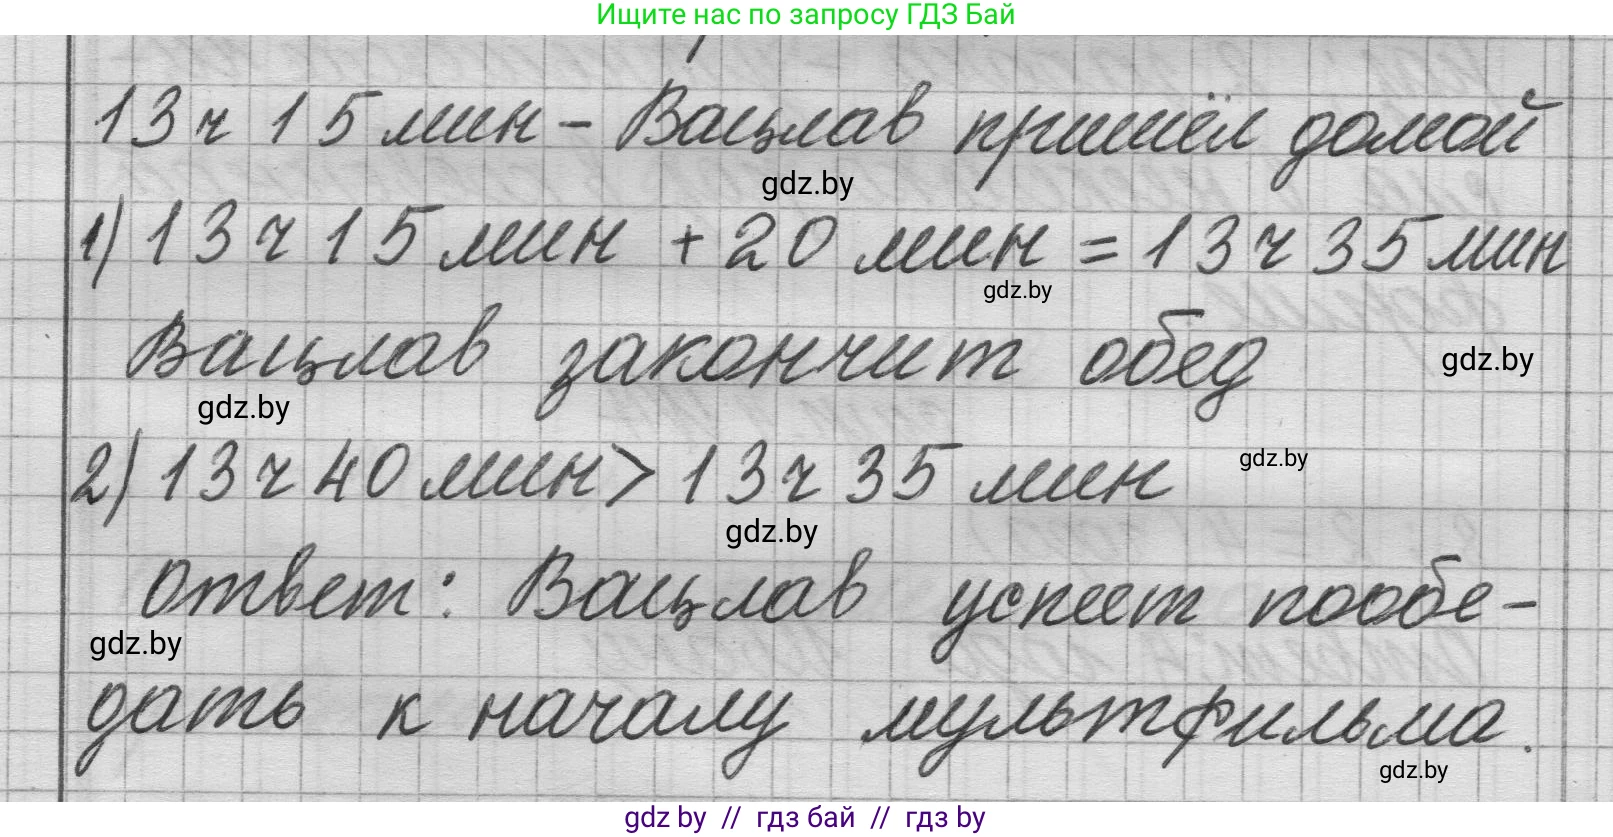 Ищите нас по запросу ГДЗ Бай
13 ч 15 мин - Вацлав пришёл домой
gdz.by
1) 13 ч 15 мин + 20 мин = 13 ч 35 мин
gdz.by
Вацлав закончит обед
gdz.by
gdz.by
2) 13 ч 40 мин > 13 ч 35 мин
gdz.by
gdz.by
Ответ: Вацлав успеет пообе-
gdz.by
дать к началу мультфильма.
gdz.by
gdz.by // гдз бай // гдз by